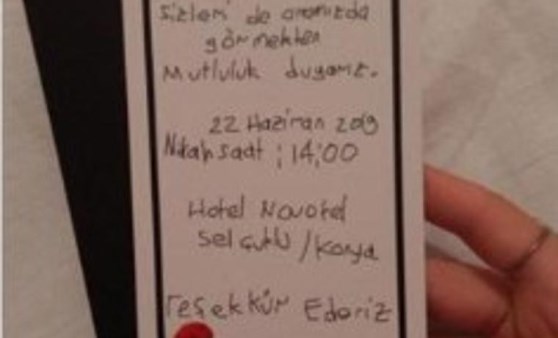 sizleri de aramızda
görmekten
mutluluk duyarız.
22 Haziran 2019
Nikah saat : 14:00
Hotel Novotel
Selçuklu / Konya
Teşekkür Ederiz